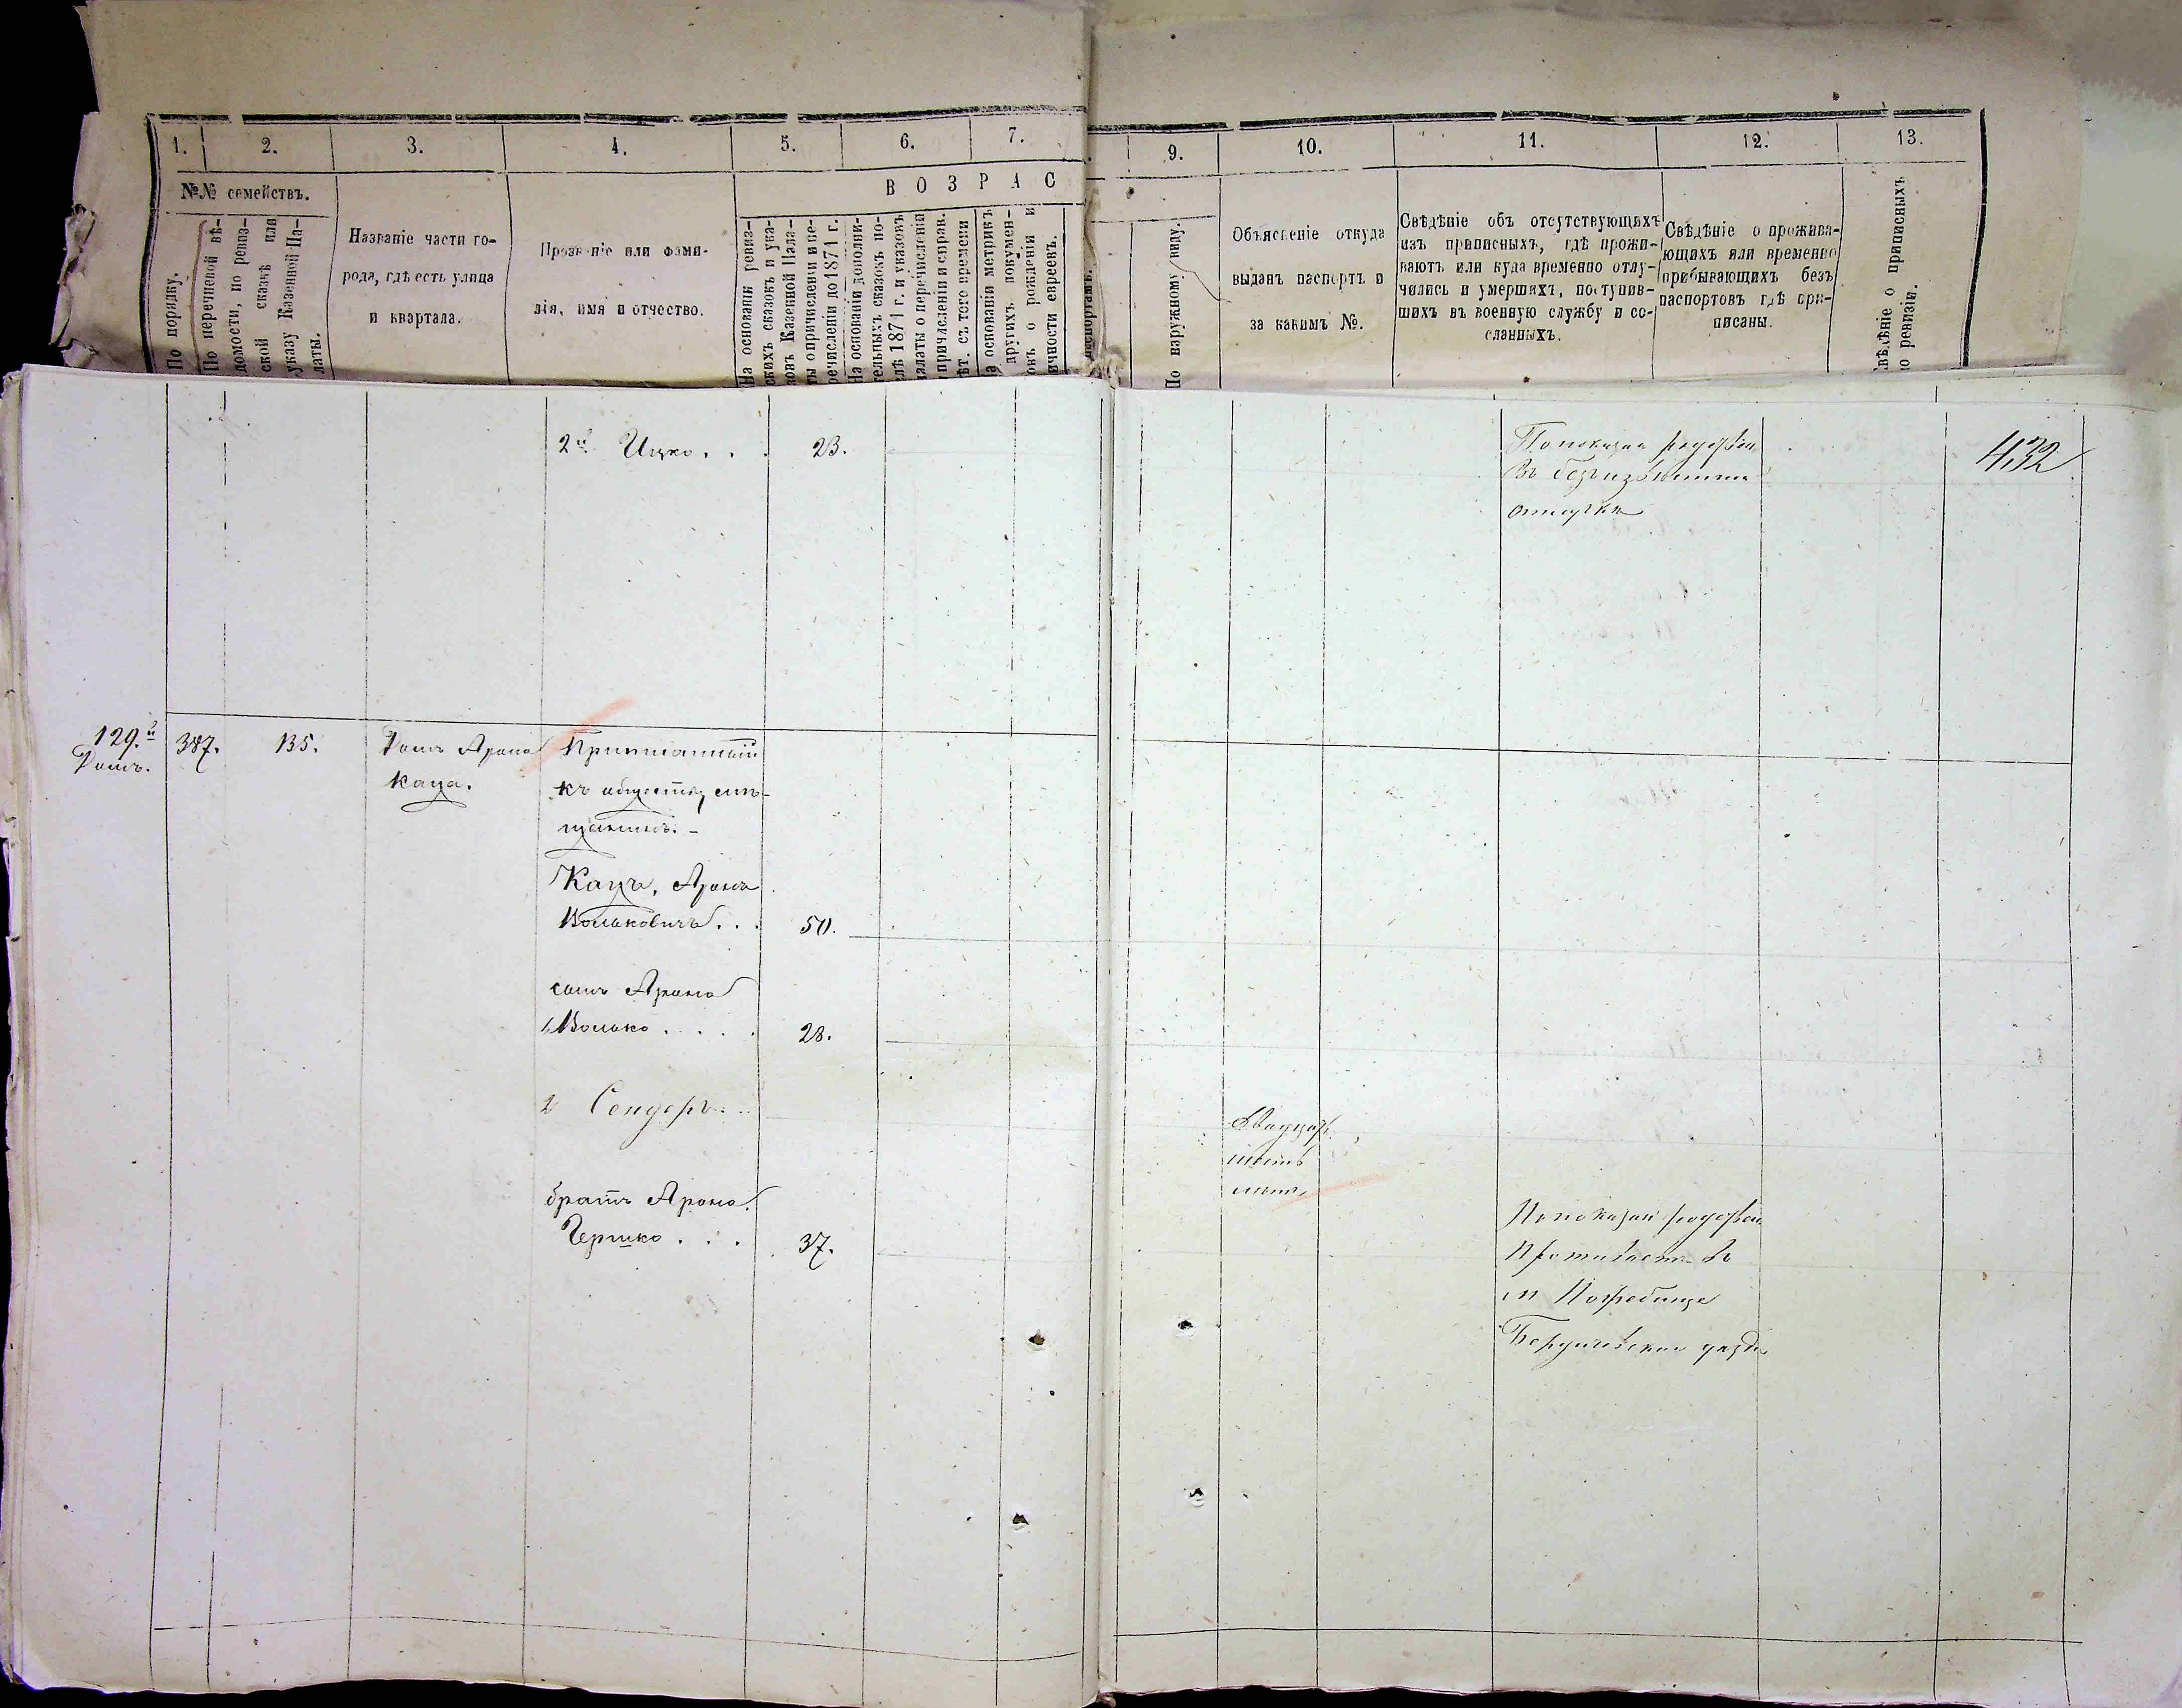 1.
2.
3.
4.
5.
6.
7.
9.
10.
11.
12.
13.
№№ семействъ.
По порядку.
По перечневой вѣ-
домости, по ревиз-
ской сказкѣ или
указу Казенной Па-
латы.
Названіе части го-
рода, гдѣ есть улица
и квартала.
Прозваніе или фами-
лія, имя и отчество.
ВОЗРАС
На основаніи ревиз-
скихъ сказокъ и ука-
зовъ Казенной Пала-
ты о причисленіи и пе-
речисленіи до 1871 г.
На основаніи дополни-
тельныхъ сказокъ по-
слѣ 1871 г. и указовъ
палаты о перечисленіи
причисленіи и справ.
лѣт. съ того времени
На основаніи метрикъ
другихъ докумен-
товъ о рожденіи и
личности евреевъ.
паспортамъ.
По наружному виду.
Объясненіе откуда
выданъ паспортъ и
за какимъ №.
Свѣдѣніе объ отсутствующихъ
изъ приписныхъ, гдѣ прожи-
ваютъ или куда временно отлу-
чились и умершихъ, поступив-
шихъ въ военную службу и со-
сланныхъ.
Свѣдѣніе о прожива-
ющихъ или временно
прибывающихъ безъ
паспортовъ гдѣ при-
писаны.
Свѣдѣніе о приписныхъ
по ревизіи.
2й Ицко. . . 23.
По показан
въ безъизвѣстной
отлучкѣ
432
129.й
Домъ.
387.
135.
Домъ Арона
Каца.
Приписанный
къ обществу мѣ-
щанинъ. –
Кацъ, Аронъ
Вольковичъ. . . 50.
сынъ Арона
1, Волько . . . . 28.
2 Сендеръ. . .
Двадцат.
шесть
лѣтъ
братъ Арона.
Гершко . . . 37.
По показан
Проживаетъ въ
м Погребище
Бердичевскаго уѣзда